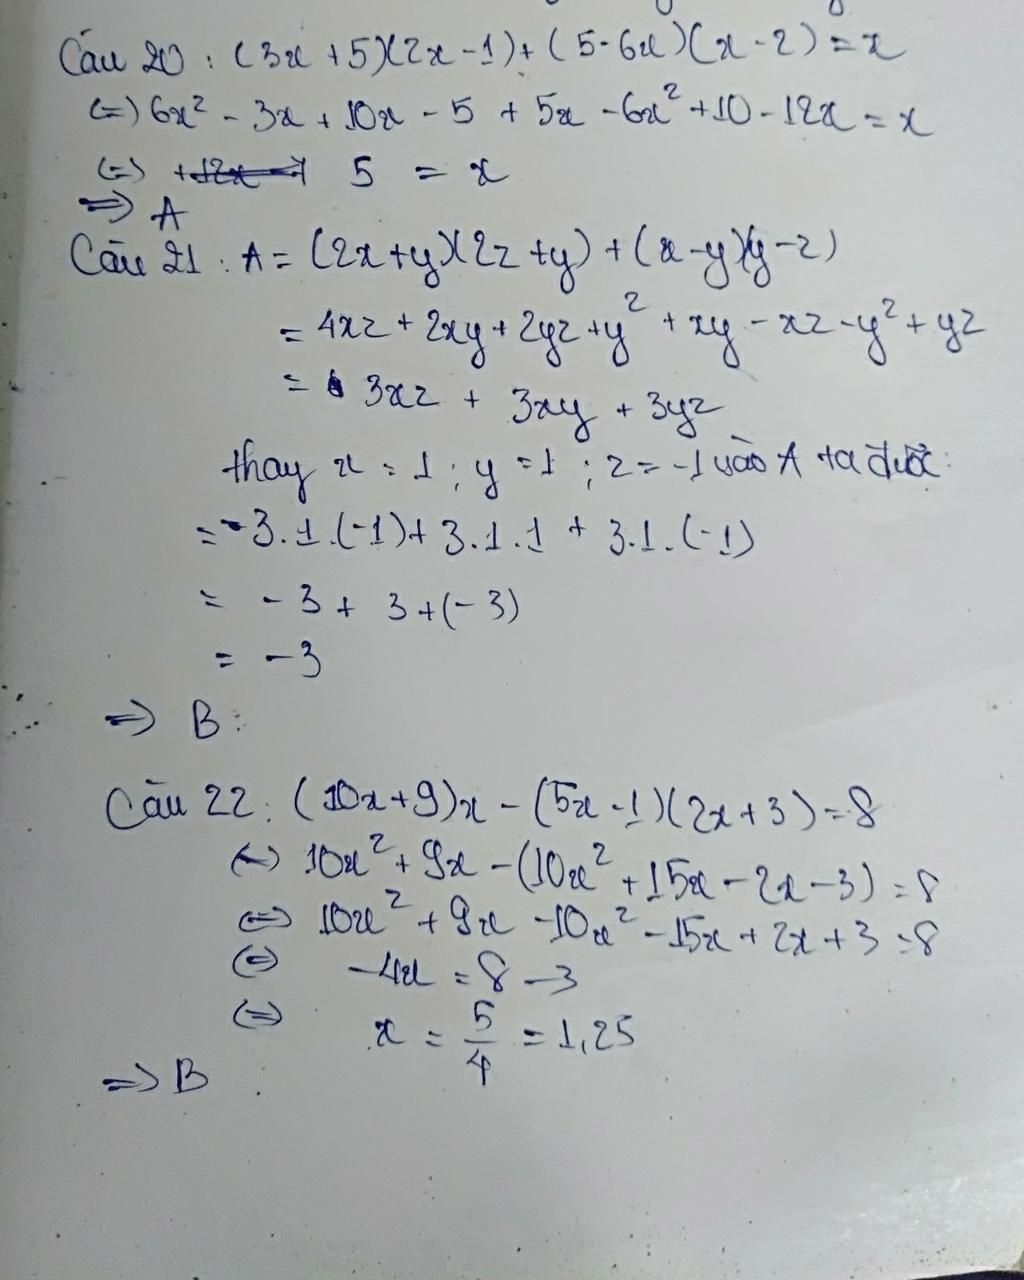 Câu 20 : (3x + 5)(2x - 1) + (5 - 6x)(x - 2) = x
(=) 6x² - 3x + 10x - 5 + 5x - 6x² + 10 - 12x = x
(=) 5 = x
=> A
Câu 21 : A = (2x + y)(2z + y) + (x - y)(y - z)
= 4xz + 2xy + 2yz + y² + xy - xz - y² + yz
= 3xz + 3xy + 3yz
thay x = 1 ; y = 1 ; z = -1 vào A ta được :
= 3.1.(-1) + 3.1.1 + 3.1.(-1)
= - 3 + 3 + (- 3)
= - 3
=> B :
Câu 22 : (10x + 9)x - (5x - 1)(2x + 3) = 8
(=) 10x² + 9x - (10x² + 15x - 2x - 3) = 8
(=) 10x² + 9x - 10x² - 15x + 2x + 3 = 8
(=) -4x = 8 - 3
(=) x = 5/4 = 1,25
=> B